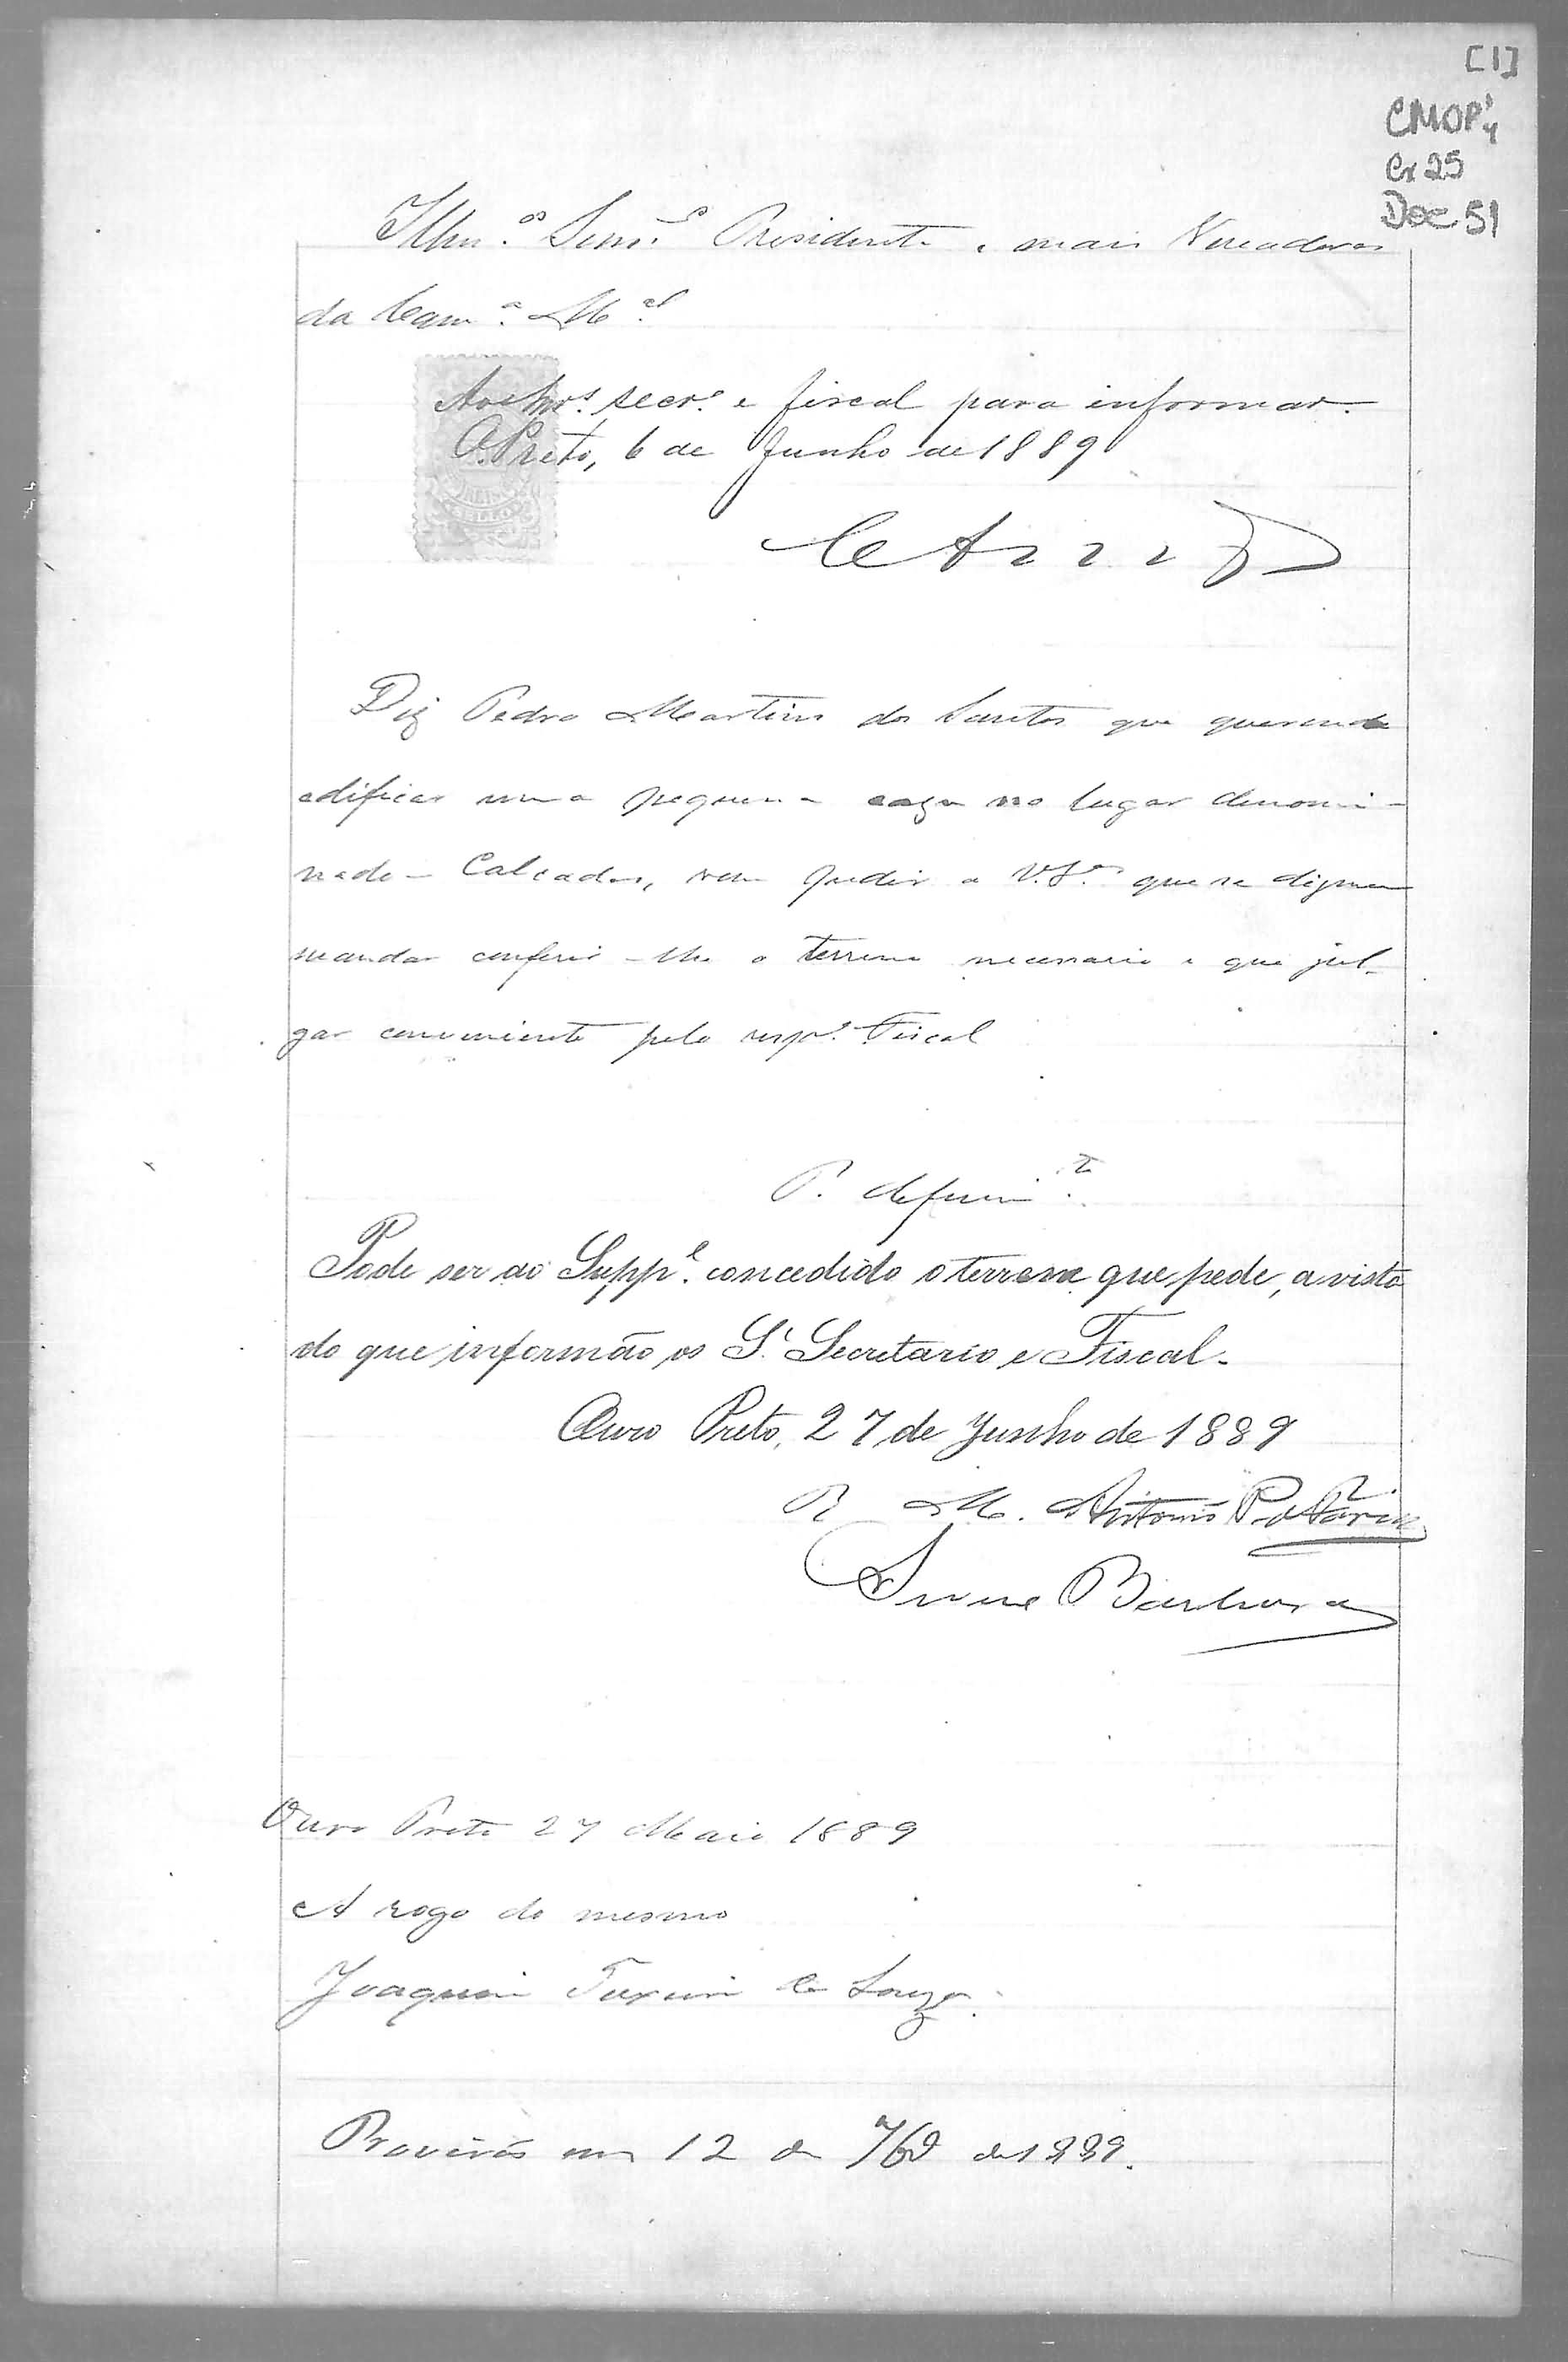 [1]
CMOP
Cx 25
Doc 51
Illm.os Senr.es Presidente e mais Vereadores
da Cam.a M.al
Aos Snrs. secr.o e fiscal para informar.
O. Preto, 6 de Junho de 1889
Diz Pedro Martins dos Santos que querendo
edificar uma pequena caza no lugar denomi-
nado - Calcados, vem pedir a V.S.as que se dignem
mandar conferir-lhe o terreno necessario e que jul-
gar conveniente pelo resp.o Fiscal
P. deferim.to
Pode ser ao Supp.e concedido o terreno que pede, a vista
do que informão os S.r Secretario e Fiscal.
Ouro Preto, 27 de Junho de 1889
R M. Antonio P.
Barbosa
Ouro Preto 27 Maio 1889
A rogo do mesmo
Joaquim de Souza.
em 12 de 7bro de 1889.